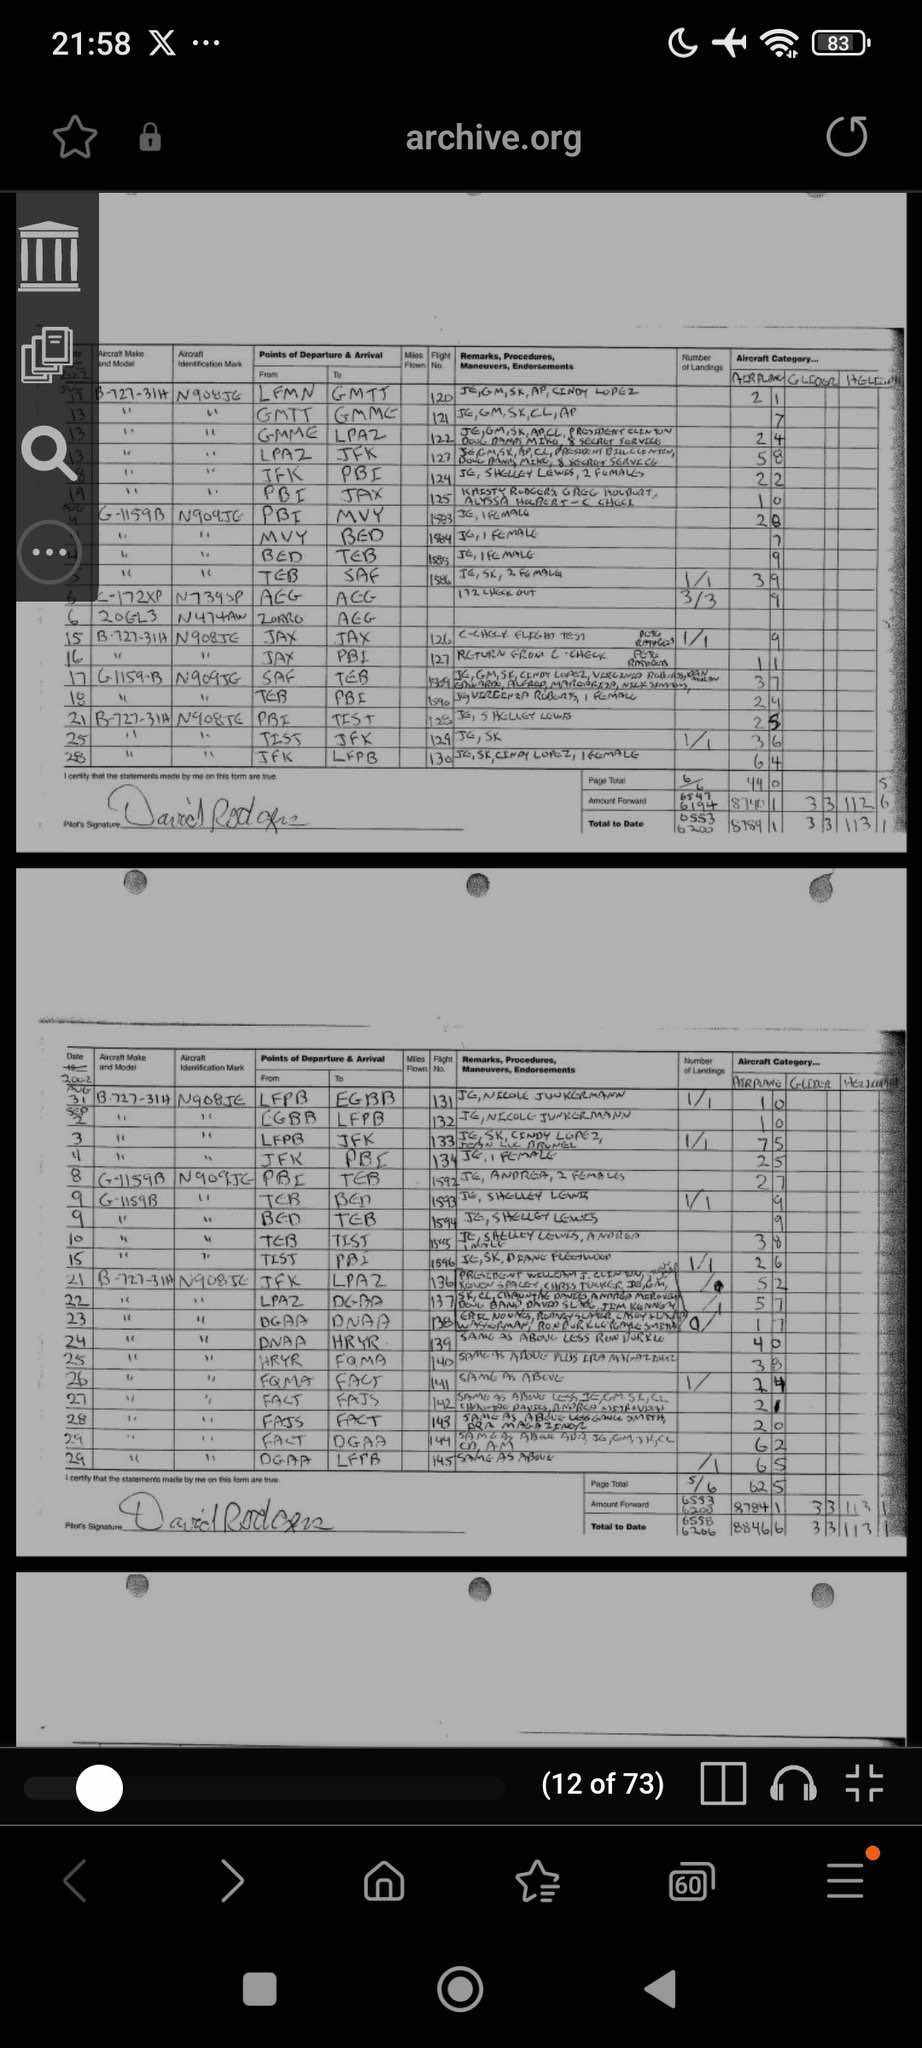 21:58 X ... 83
archive.org
Aircraft Make and Model Aircraft Identification Mark Points of Departure & Arrival Miles Flown Flight No. Remarks, Procedures, Maneuvers, Endorsements Number of Landings Aircraft Category...
From To AIRPLANE GLIDER
B-727-31H N908JE LFMN GMTT 120 JE, GM, SK, AP, CINDY LOPEZ 2 1
13 " " GMTT GMME 121 JE, GM, SK, CL, AP 7
13 " " GMME LPAZ 122 JE, GM, SK, AP, CL, PRESIDENT CLINTON
DOUG BAND, MIKE, 8 SECRET SERVICE 2 4
13 " " LPAZ JFK 123 JE, GM, SK, AP, CL, PRESIDENT BILL CLINTON,
DOUG BAND, MIKE, 8 SECRET SERVICE 5 8
" " JFK PBI 124 JE, SHELLEY LEWIS, 2 FEMALES 2 2
19 " " PBI JAX 125 KRISTY RODGERS, GREG HOLBERT,
ALYSSA HOLBERT - C CHECK 1 0
G-1159B N909JE PBI MVY 1583 JE, 1 FEMALE 2 8
" " MVY BED 1584 JE, 1 FEMALE 7
" " BED TEB 1585 JE, 1 FEMALE 9
5 " " TEB SAF 1586 JE, SK, 2 FEMALE 1/1 3 9
C-172XP N739SP AEG AEG 172 CHECK OUT 3/3 9
6 20GL3 N474AW ZORRO AEG
15 B-727-31H N908JE JAX JAX 126 C-CHECK FLIGHT TEST PETE RATHGEB 1/1 9
16 " " JAX PBI 127 RETURN FROM C-CHECK PETE RATHGEB 1 1
17 G-1159-B N909JE SAF TEB 1589 JE, GM, SK, CINDY LOPEZ, VIRGINIA ROBERTS 3 7
18 " " TEB PBI 1590 JE, VIRGINIA ROBERTS, 1 FEMALE 2 4
21 B-727-31H N908JE PBI TIST 128 JE, SHELLEY LEWIS 2 5
25 " " TIST JFK 129 JE, SK 1/1 3 6
28 " " JFK LFPB 130 JE, SK, CINDY LOPEZ, 1 FEMALE 6 4
I certify that the statements made by me on this form are true. Page Total 6/6 44 0 5
Amount Forward 6547 6194 8740 1 3 3 112 6
Pilot's Signature David Rodgers Total to Date 6553 6200 8784 1 3 3 113 1
Date Aircraft Make and Model Aircraft Identification Mark Points of Departure & Arrival Miles Flown Flight No. Remarks, Procedures, Maneuvers, Endorsements Number of Landings Aircraft Category...
2002 From To AIRPLANE GLIDER
AUG
31 B-727-31H N908JE LFPB EGBB 131 JE, NICOLE JUNKERMANN 1/1 1 0
SEP
2 " " EGBB LFPB 132 JE, NICOLE JUNKERMANN 1 0
3 " " LFPB JFK 133 JE, SK, CINDY LOPEZ,
JEAN LUC BRUNEL 1/1 7 5
4 " " JFK PBI 134 JE, 1 FEMALE 2 5
8 G-1159B N909JE PBI TEB 1592 JE, ANDREA, 2 FEMALES 2 7
9 G-1159B " TEB BED 1593 JE, SHELLEY LEWIS 1/1 9
9 " " BED TEB 1594 JE, SHELLEY LEWES 9
10 " " TEB TIST 1595 JE, SHELLEY LEWIS, ANDREA 3 8
15 " " TIST PBI 1596 JE, SK, DIANE FLEETWOOD 1/1 2 6
21 B-727-31H N908JE JFK LPAZ 136 PRESIDENT WILLIAM J. CLINTON,
KEVIN SPACEY, CHRIS TUCKER, JE, GM, 5 2
22 " " LPAZ DGAA 137 SK, CL, CHAUNTAE DAVIES, ANDREA
DOUG BAND, DAVID SLADE, JIM KENNEZ 5 7
23 " " DGAA DNAA 138 ERIC NONACS, RODNEY SLATER, CASEY
WASSERMAN, RON BURKLE, GAYLE SMITH 1 7
24 " " DNAA HRYR 139 SAME AS ABOVE LESS RON BURKLE 4 0
25 " " HRYR FQMA 140 SAME AS ABOVE PLUS IRA MAGAZINER 3 8
26 " " FQMA FACT 141 SAME AS ABOVE 1/ 2 4
27 " " FACT FAJS 142 SAME AS ABOVE LESS, JE, GM, SK, CL
CHAUNTAE DAVIES, ANDREA 2 1
28 " " FAJS FACT 143 SAME AS ABOVE LESS GAYLE SMITH,
IRA MAGAZINER 2 0
29 " " FACT DGAA 144 SAME AS ABOVE ADD, JE, GM, SK, CL
CD, AM 6 2
29 " " DGAA LFPB 145 SAME AS ABOVE /1 6 5
I certify that the statements made by me on this form are true. Page Total 5/6 62 5
Amount Forward 6553 6200 8784 1 3 3 113 1
Pilot's Signature David Rodgers Total to Date 6558 6206 8846 6 3 3 113 1
(12 of 73)
60